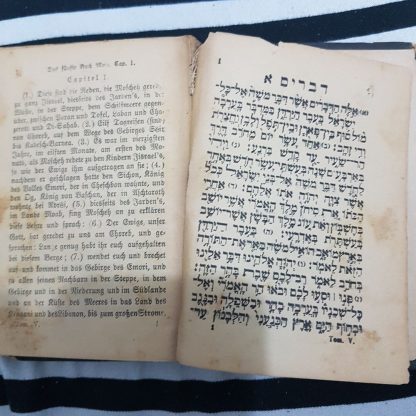 Das fünfte Buch Mose. Cap. 1.
Capitel 1
(1.) Dies sind die Reden, die Moscheh gere-
det zu ganz Jisrael, diesseits des Jarden's, in der
Steppe, dem Schilfmeere gegen-
über, zwischen Paran und Tofel, Laban und Cha-
zerot und Di-Sahab. (2.) Elf Tagreisen sind's
von Choreb, auf dem Wege des Gebirges Seïr
bis Kadesch-Barnea. (3.) Es war im vierzigsten
Jahre, im elften Monate, am ersten des Mo-
nats, als Moscheh redete zu den Kindern Jisrael's,
so wie der Ewige ihm aufgetragen an sie; (4.)
nachdem er geschlagen hatte den Sichon, König
des Volkes Emori, der in Cheschbon wohnte, und
den Og, König von Baschan, der in Aschtarot
wohnte, bei Edreï, (5.) diesseits des Jarden's,
im Lande Moab, fing Moscheh an zu erklären
diese Lehre und sprach: (6.) Der Ewige, unser
Gott, hat geredet zu uns am Choreb, und ge-
sprochen: Lang genug habt ihr euch aufgehalten
an diesem Berge; (7.) wendet euch und brechet
auf und kommet in das Gebirge des Emori, und
zu allen seinen Nachbarn in der Steppe, in dem
Gebirge und in der Niederung und im Südlande
und an der Küste des Meeres in das Land des
Kenaani und des Libanon, bis zum großen Strome,
Tom. V. 1
1
דברים א
(א) אלה הדברים אשר דבר משה אל־כל־
ישראל בעבר הירדן במדבר בערבה
מול סוף בין־פארן ובין־תפל ולבן וחצרת
ודי זהב: (ב) אחד עשר יום מחרב דרך
הר־שעיר עד קדש ברנע: (ג) ויהי בארבעים
שנה בעשתי־עשר חדש באחד
לחדש דבר משה אל־בני ישראל ככל
אשר צוה יהוה אתו אלהם: (ד) אחרי
הכתו את סיחן מלך האמרי אשר יושב
בחשבון ואת עוג מלך הבשן אשר־יושב
בעשתרת באדרעי: (ה) בעבר הירדן
בארץ מואב הואיל משה באר את־התורה
הזאת לאמר: (ו) יהוה אלהינו דבר אלינו
בחרב לאמר רב לכם שבת בהר
הזה: (ז) פנו | וסעו לכם ובאו הר האמרי ואל־
כל־שכניו בערבה בהר ובשפלה ובנגב
ובחוף הים ארץ הכנעני והלבנון עד־
1
Tom. V.